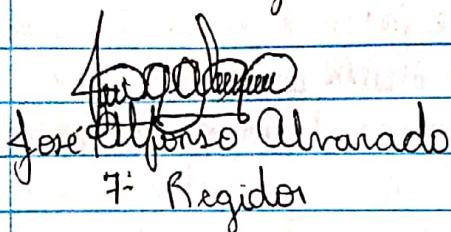 José Alfonso Alvarado
7: Regidor